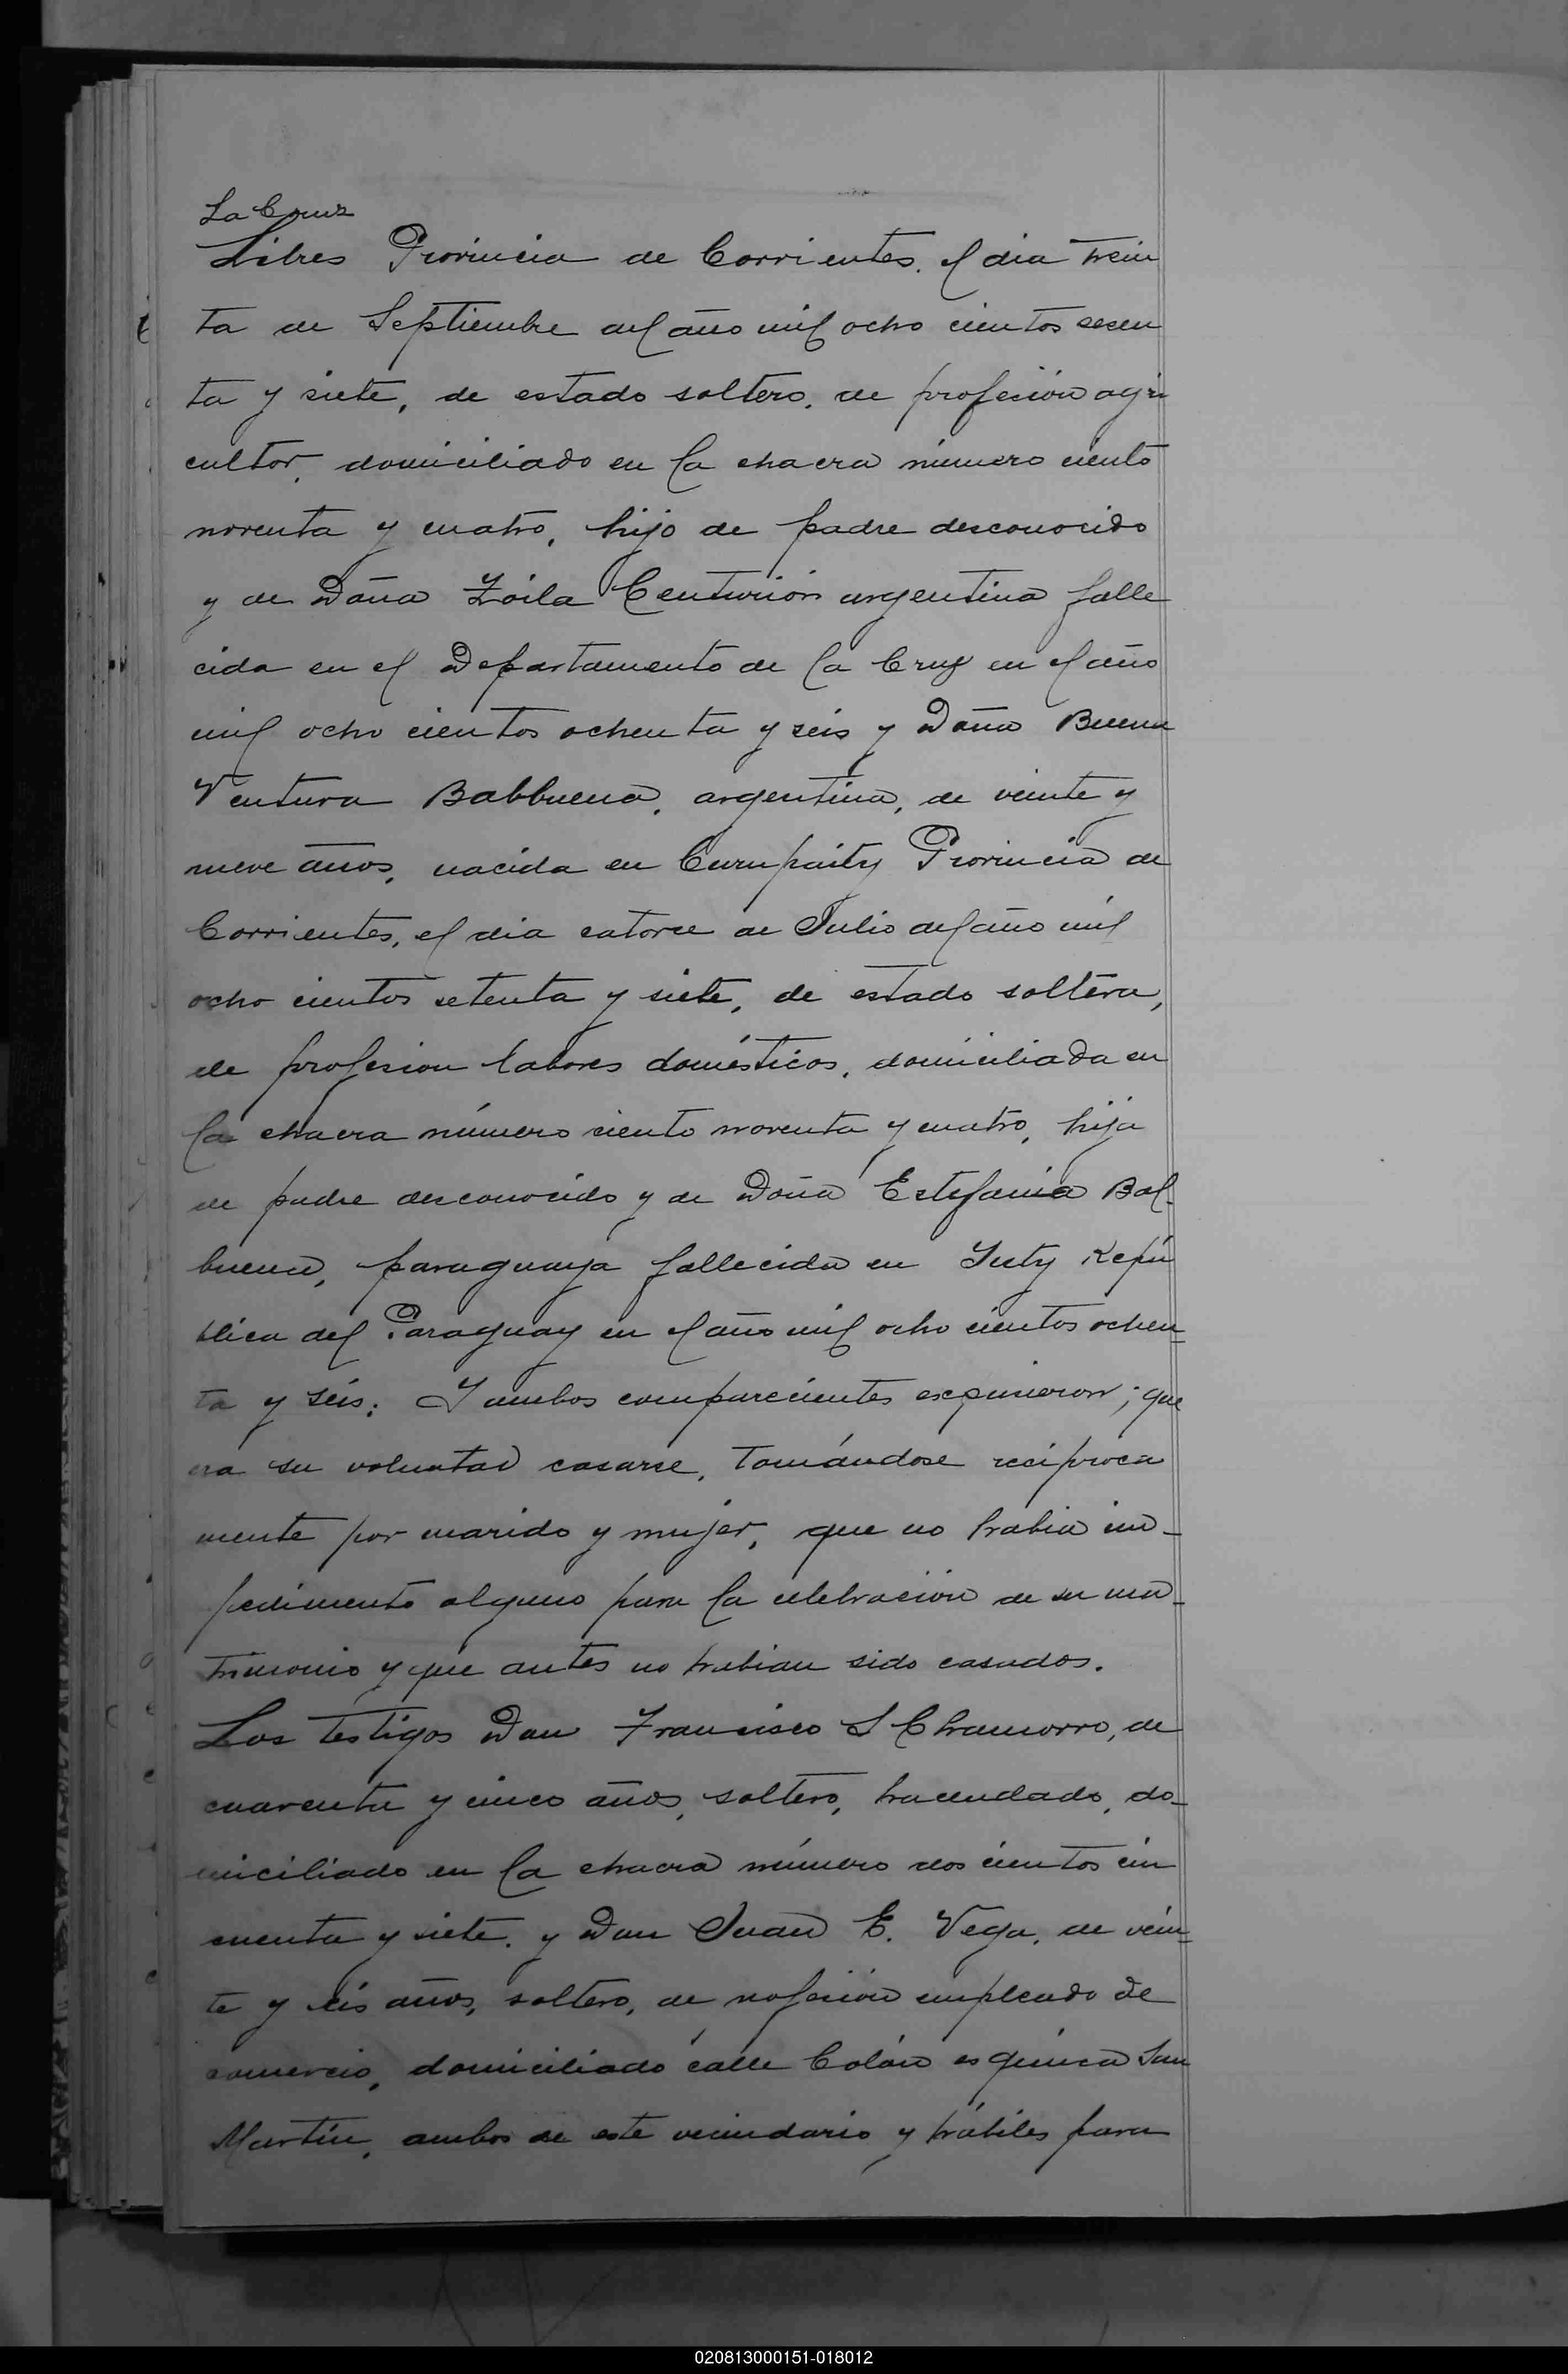 La Cruz
Libres Provincia de Corrientes. el dia trein
ta de Septiembre del año mil ocho cientos sesen
ta y siete, de estado soltero, de profesión agri
cultor, domiciliado en la chacra número ciento
noventa y cuatro, hijo de padre desconocido
y de Doña Zoila Centurión argentina falle
cida en el Departamento de la Cruz en el año
mil ocho cientos ochenta y seis y Doña Buena
Ventura Balbuena, argentina, de veinte y
nueve años, nacida en Curupaity Provincia de
Corrientes, el dia catorce de Julio del año mil
ocho cientos setenta y siete, de estado soltera,
de profesion labores domésticos, domiciliada en
la chacra número ciento noventa y cuatro, hija
de padre desconocido y de Doña Estefania Bal-
buena, paraguaya fallecida en Yuty Repú
blica del Paraguay en el año mil ocho cientos ochen-
ta y seis: Y ambos comparecientes expusieron; que
era su voluntad casarse, tomándose reciproca
mente por marido y mujer, que no habia im-
pedimento alguno para la celebración de su ma-
trimonio y que antes no habian sido casados.
Los testigos Don Francisco S Chamorro, de
cuarenta y cinco años, soltero, hacendado, do-
miciliado en la chacra número dos cientos cin
cuenta y siete. y Don Juan E. Vega, de vein-
te y seis años, soltero, de profesión empleado de
comercio, domiciliado calle Colón esquina San
Martin, ambos de este vecindario y hábiles para
020813000151-018012